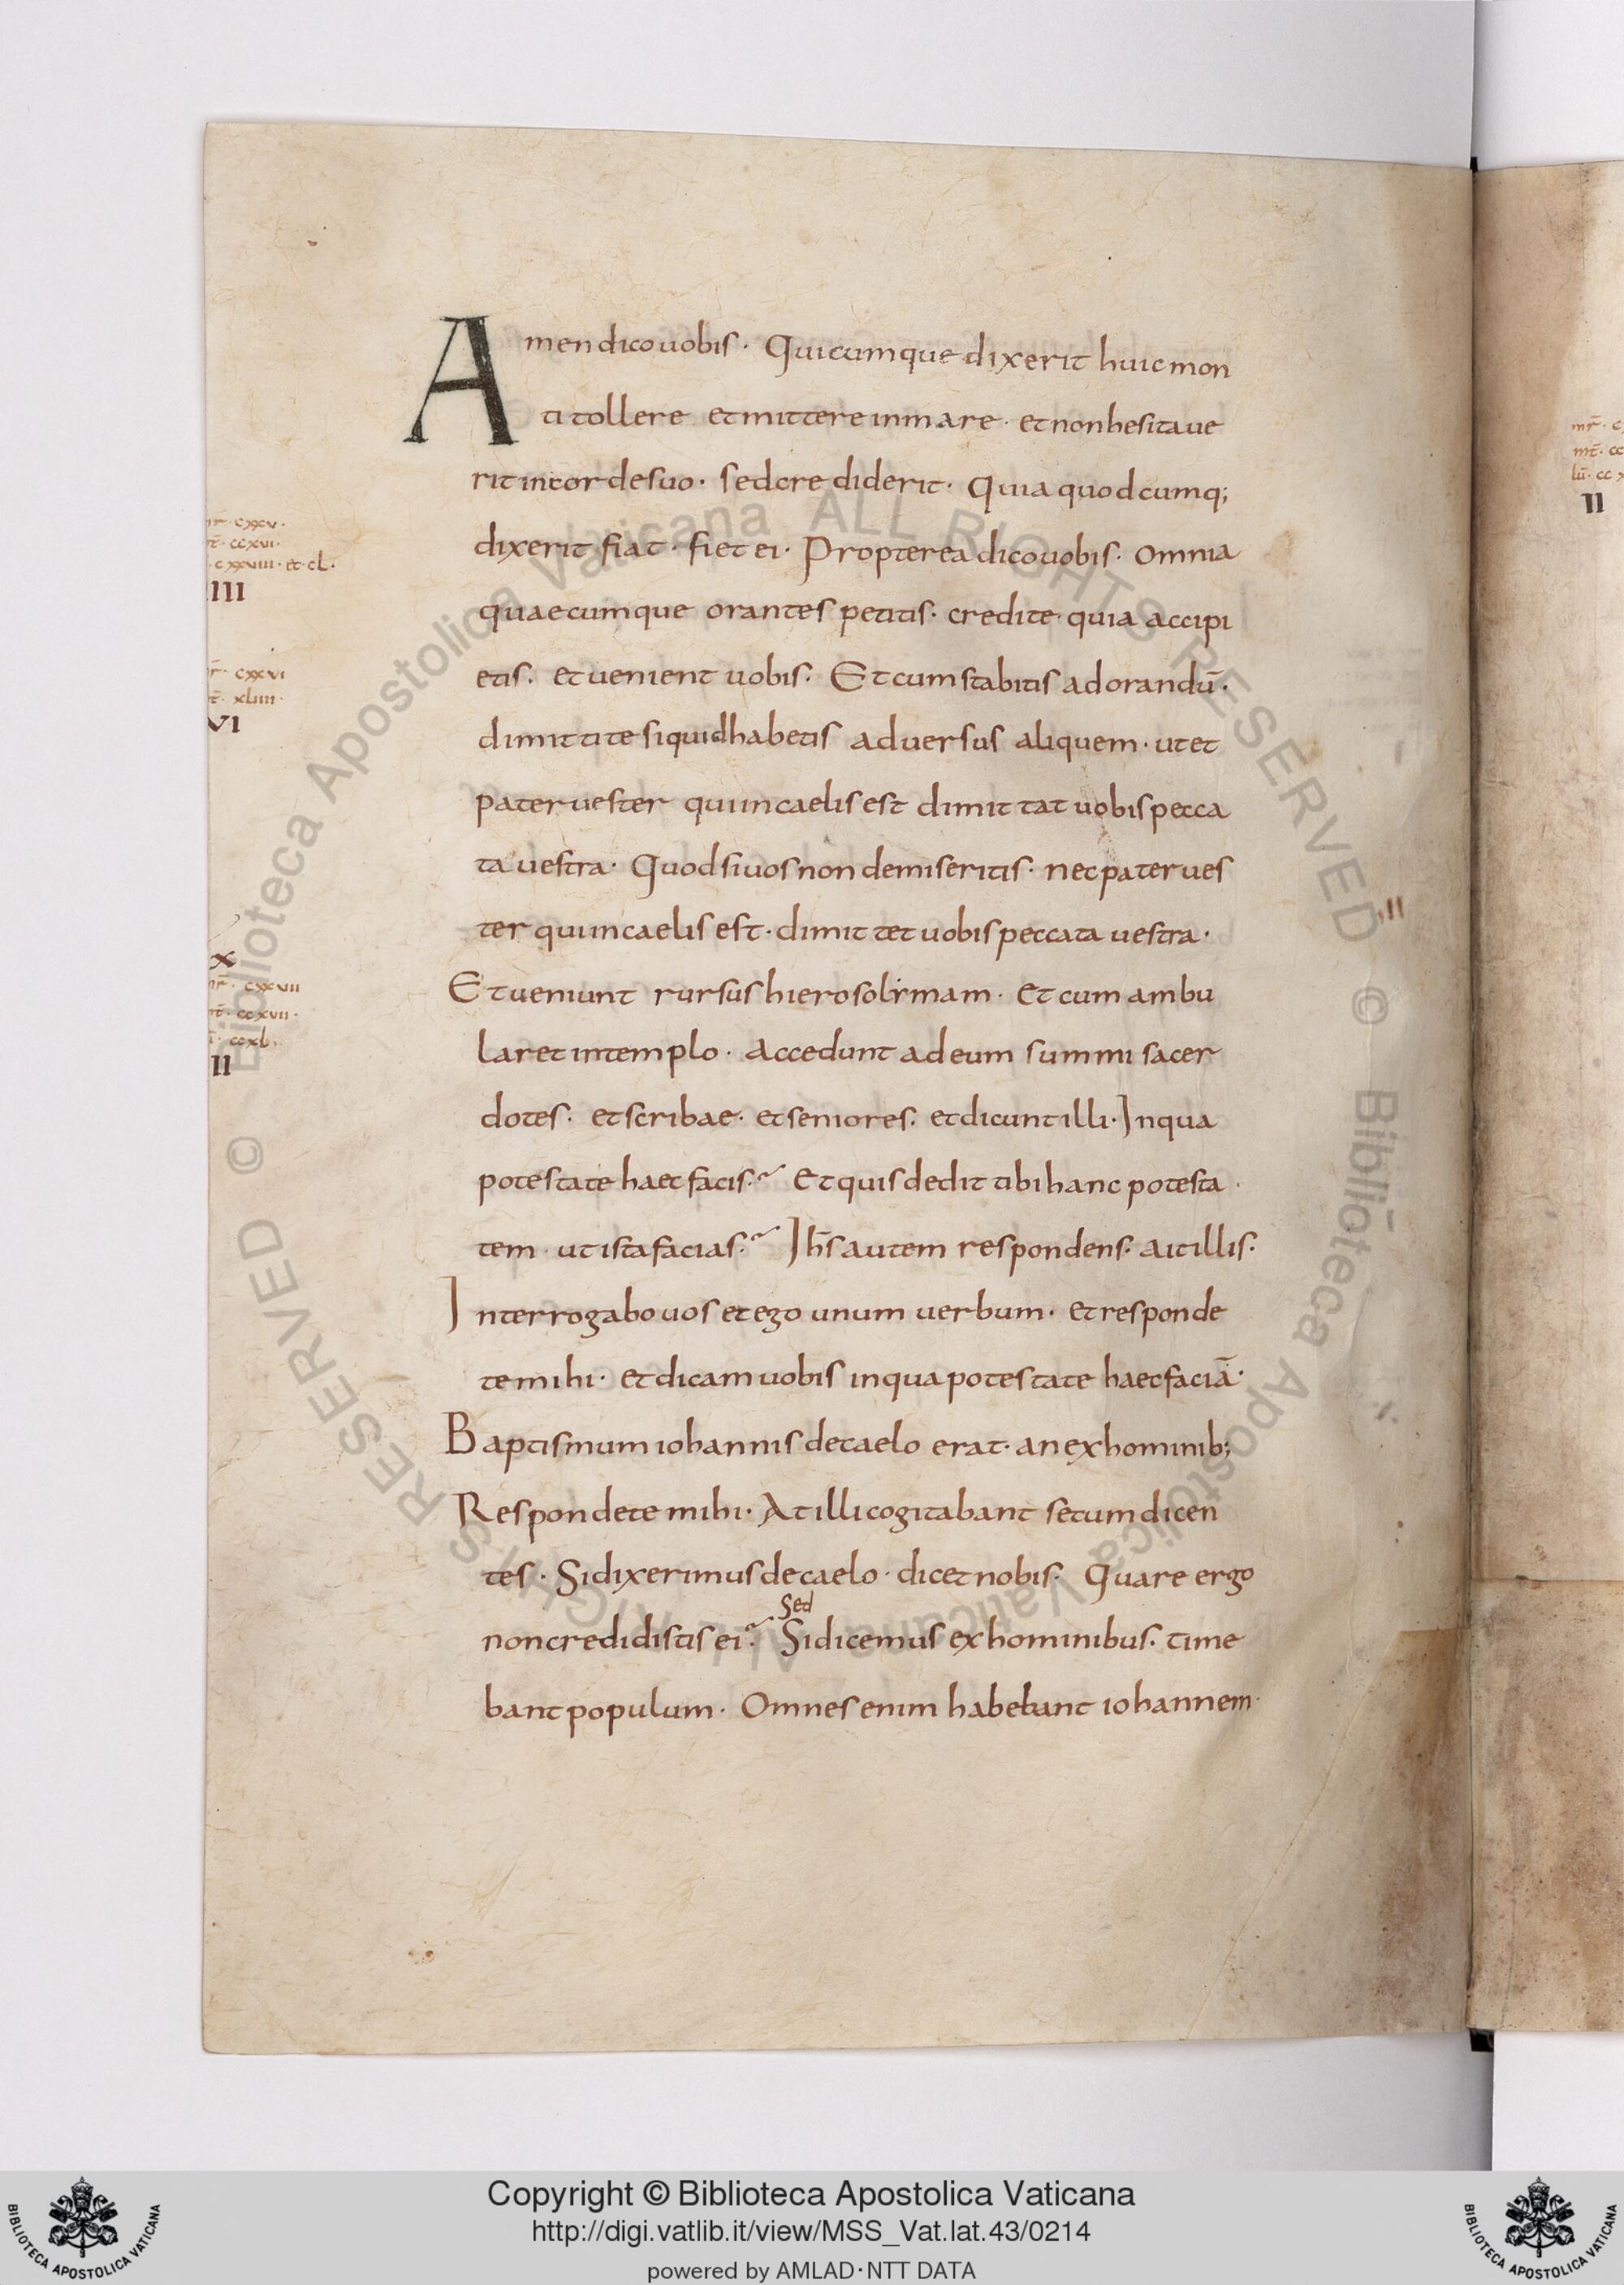 Amen dico uobis· Quicumque dixerit huic mon
ti tollere et mittere in mare· et non hesitaue
rit in corde suo· sed crediderit· Quia quodcumq;
dixerit fiat· fiet ei· Propterea dico uobis· omnia
quaecumque orantes petitis· credite quia accipi
etis· et uenient uobis· Et cum stabitis ad orandū·
dimittite siquid habetis aduersus aliquem· ut et
pater uester qui in caelis est dimittat uobis pecca
ta uestra· Quod si uos non demiseritis· nec pater ues
ter qui in caelis est· dimittet uobis peccata uestra·
Et ueniunt rursus hierosolymam· et cum ambu
laret in templo· accedunt ad eum summi sacer
dotes· et scribae· et seniores· et dicunt illi· In qua
potestate haec facis? Et quis dedit tibi hanc potesta
tem· ut ista facias? Ih̄s autem respondens· ait illis·
Interrogabo uos et ego unum uerbum· et responde
te mihi· et dicam uobis in qua potestate haec faciā·
Baptismum iohannis de caelo erat· an ex hominib;
Respondete mihi· At illi cogitabant secum dicen
tes· Si dixerimus de caelo· dicet nobis· Quare ergo
Sed
non credidistis ei? Si dicemus ex hominibus· time
bant populum· Omnes enim habebant iohannem·
cxxv·
ccxvi·
cxxviii· et cl·
III
cxxvi
xliiii·
VI
X
cxxvii
ccxvii·
ccxl·
II
II
Biblioteca Apostolica Vaticana ALL RIGHTS RESERVED ©
Biblioteca Apostolica Vaticana ALL RIGHTS RESERVED ©
Copyright © Biblioteca Apostolica Vaticana
http://digi.vatlib.it/view/MSS_Vat.lat.43/0214
powered by AMLAD·NTT DATA
BIBLIOTECA APOSTOLICA VATICANA
BIBLIOTECA APOSTOLICA VATICANA